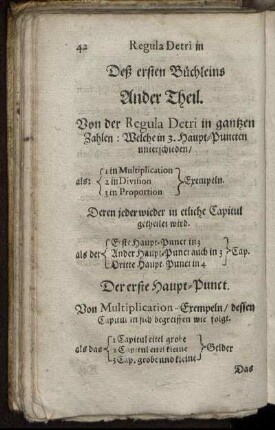 42 Regula Detri in
Deß ersten Büchleins
Ander Theil.
Von der Regula Detri in gantzen
Zahlen: Welche in 3. Haupt/Puncten
unterschieden/
1 in Multiplication
als: 2 in Division Exempeln.
3 in Proportion
Deren jeder wieder in etliche Capitul
getheilet wird.
Erste Haupt-Punct in 3
als der Ander Haupt-Punct auch in 3 Cap.
Dritte Haupt Punct in 4
Der erste Haupt-Punct.
Von Multiplication-Exempeln/ dessen
Capitul in sich begreiffen wie folgt.
1 Capitul eitel grobe
als das 2 Capitul eitel kleine Gelder
3 Cap. grobe und kleine
Das